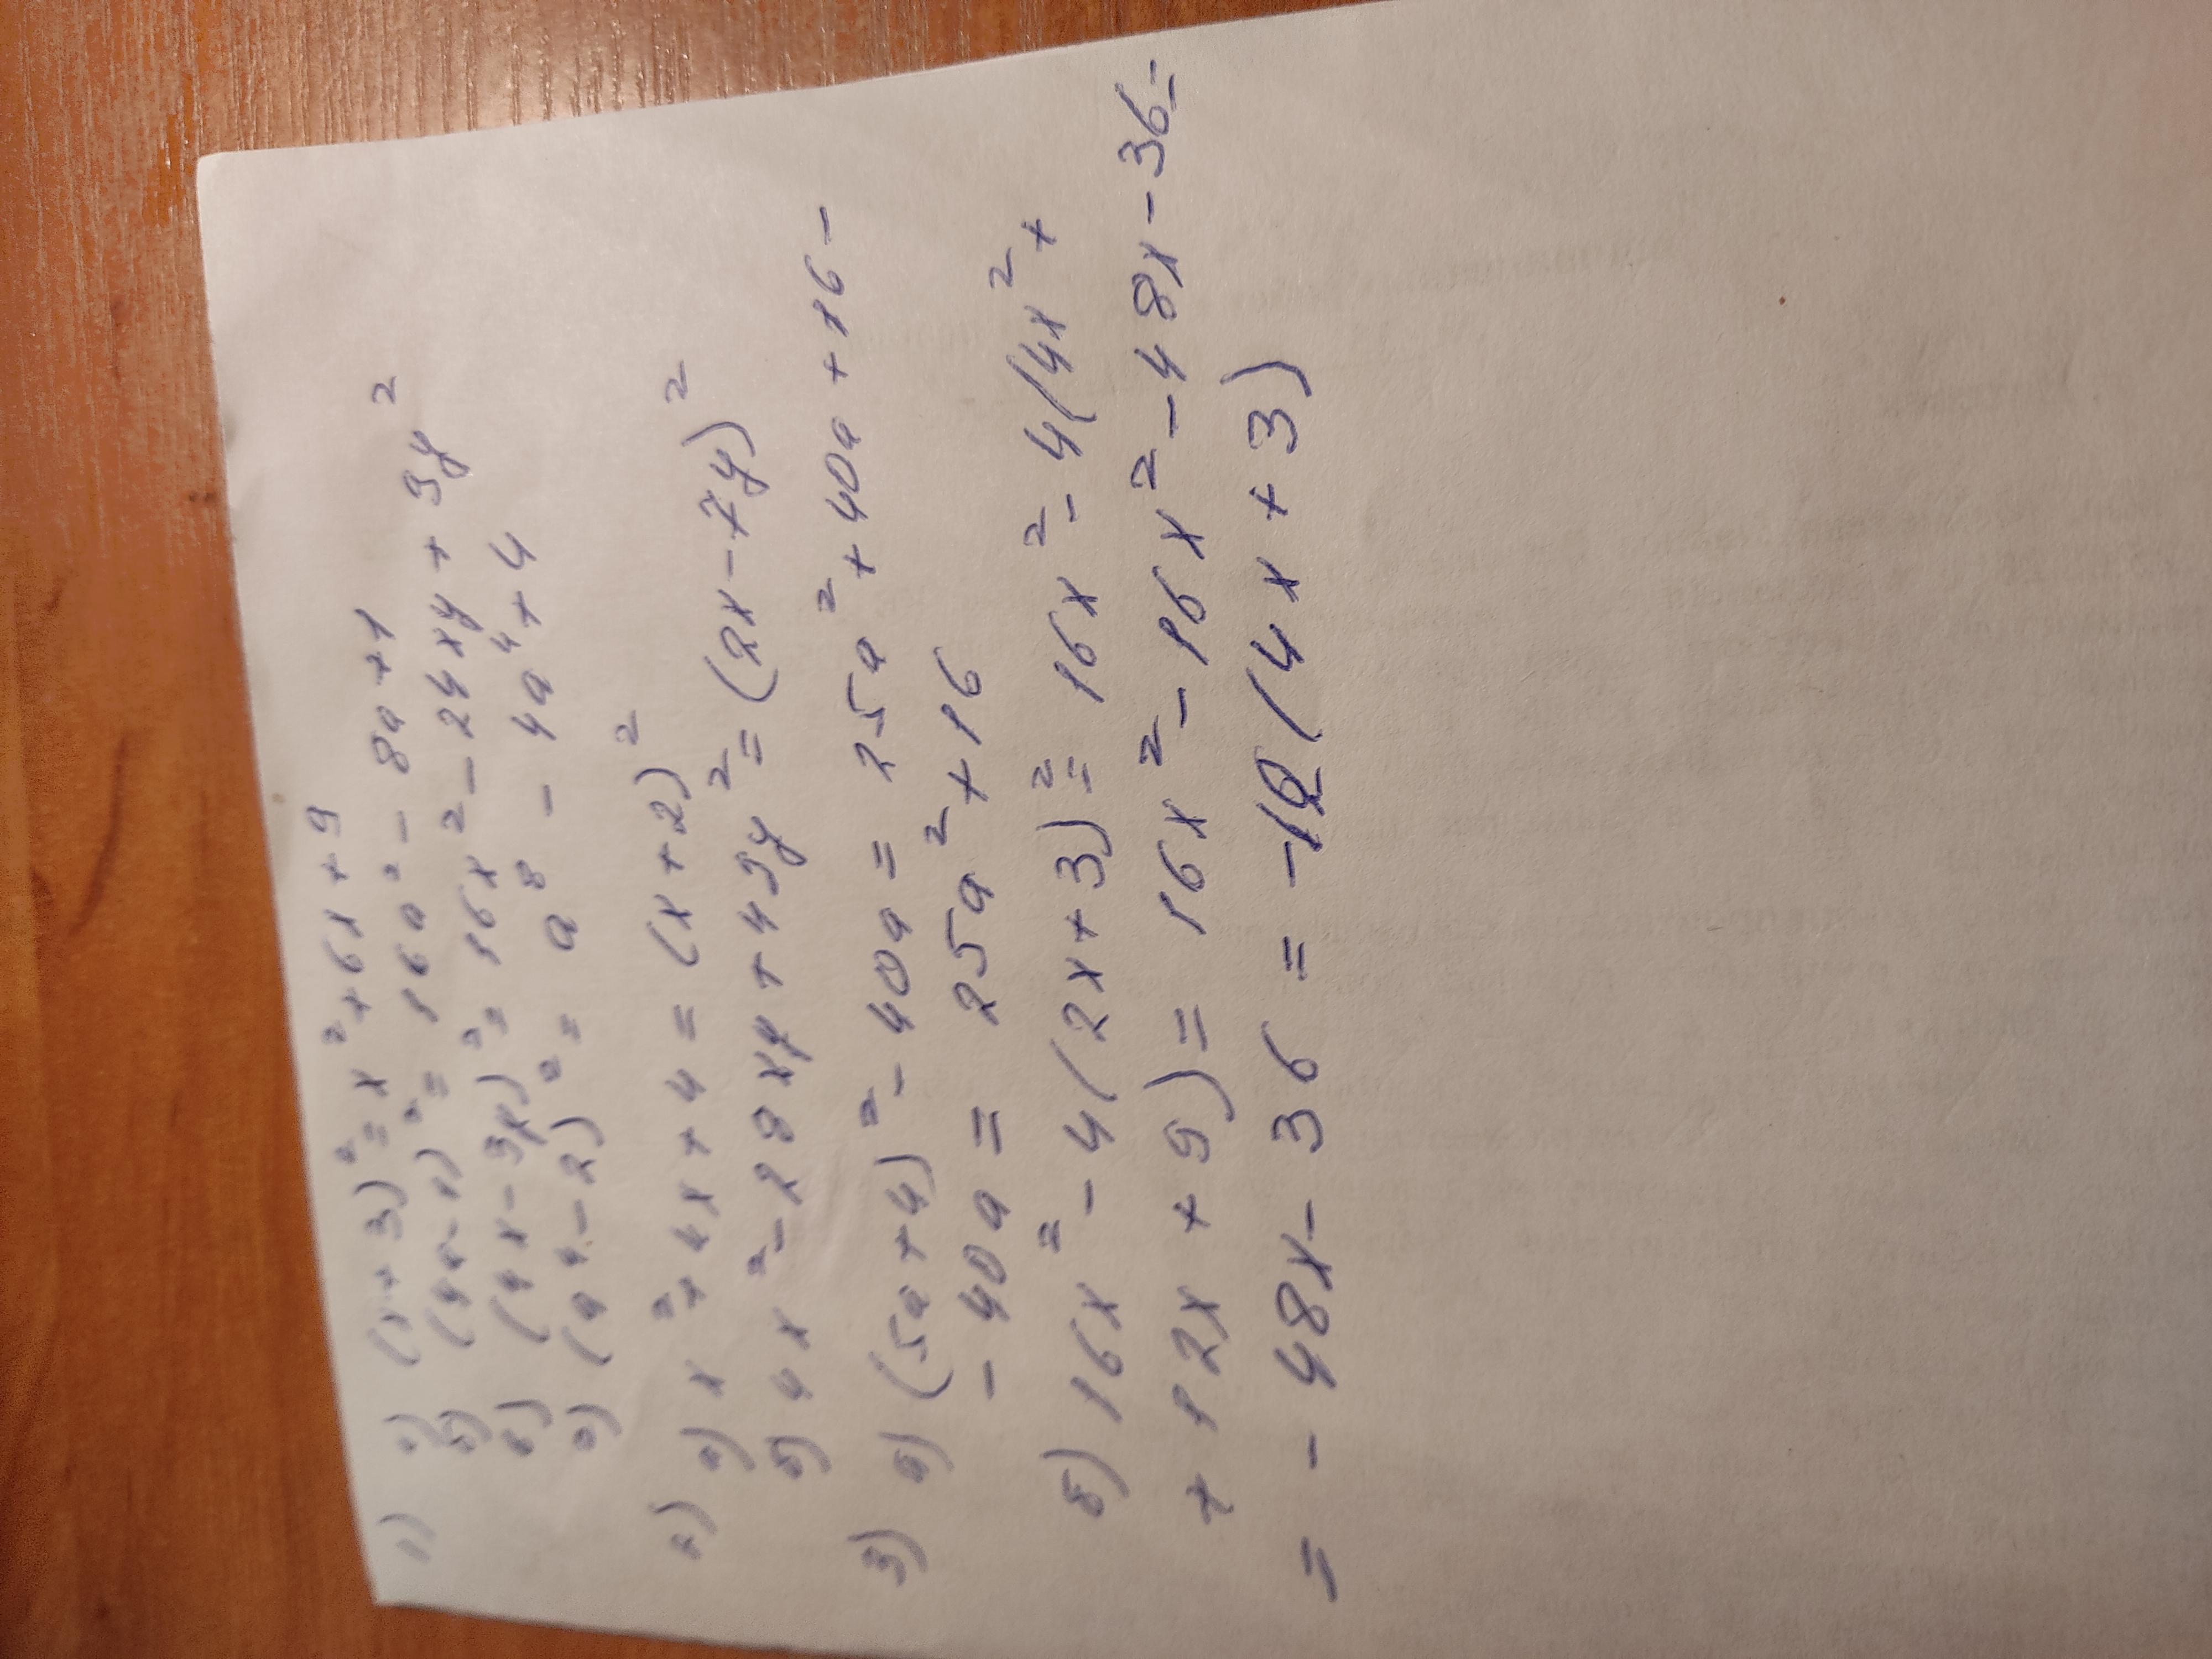 1) а) (x + 3)² = x² + 6x + 9
б) (4a - 1)² = 16a² - 8a + 1
в) (4x - 3y)² = 16x² - 24xy + 9y²
г) (a⁴ - 2)² = a⁸ - 4a⁴ + 4
2) а) x² + 4x + 4 = (x + 2)²
б) 4x² - 28xy + 49y² = (2x - 7y)²
3) а) (5a + 4)² - 40a = 25a² + 40a + 16 -
- 40a = 25a² + 16
б) 16x² - 4(2x + 3)² = 16x² - 4(4x² +
+ 12x + 9) = 16x² - 16x² - 48x - 36 =
= - 48x - 36 = -12(4x + 3)